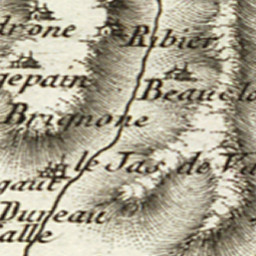 drone
Ribier
gepain
Beauclo
Brignone
le Jas de Va
gaut
Dureau
alle